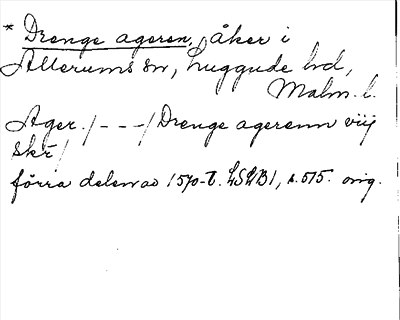 * Drenge ageren, åker i
Allerums sn, Luggude hd,
Malm. l.
Ager. /---/ Drenge agerenn viij
skr /
förra delen av 1570-t. LSLB1, s. 515. orig.